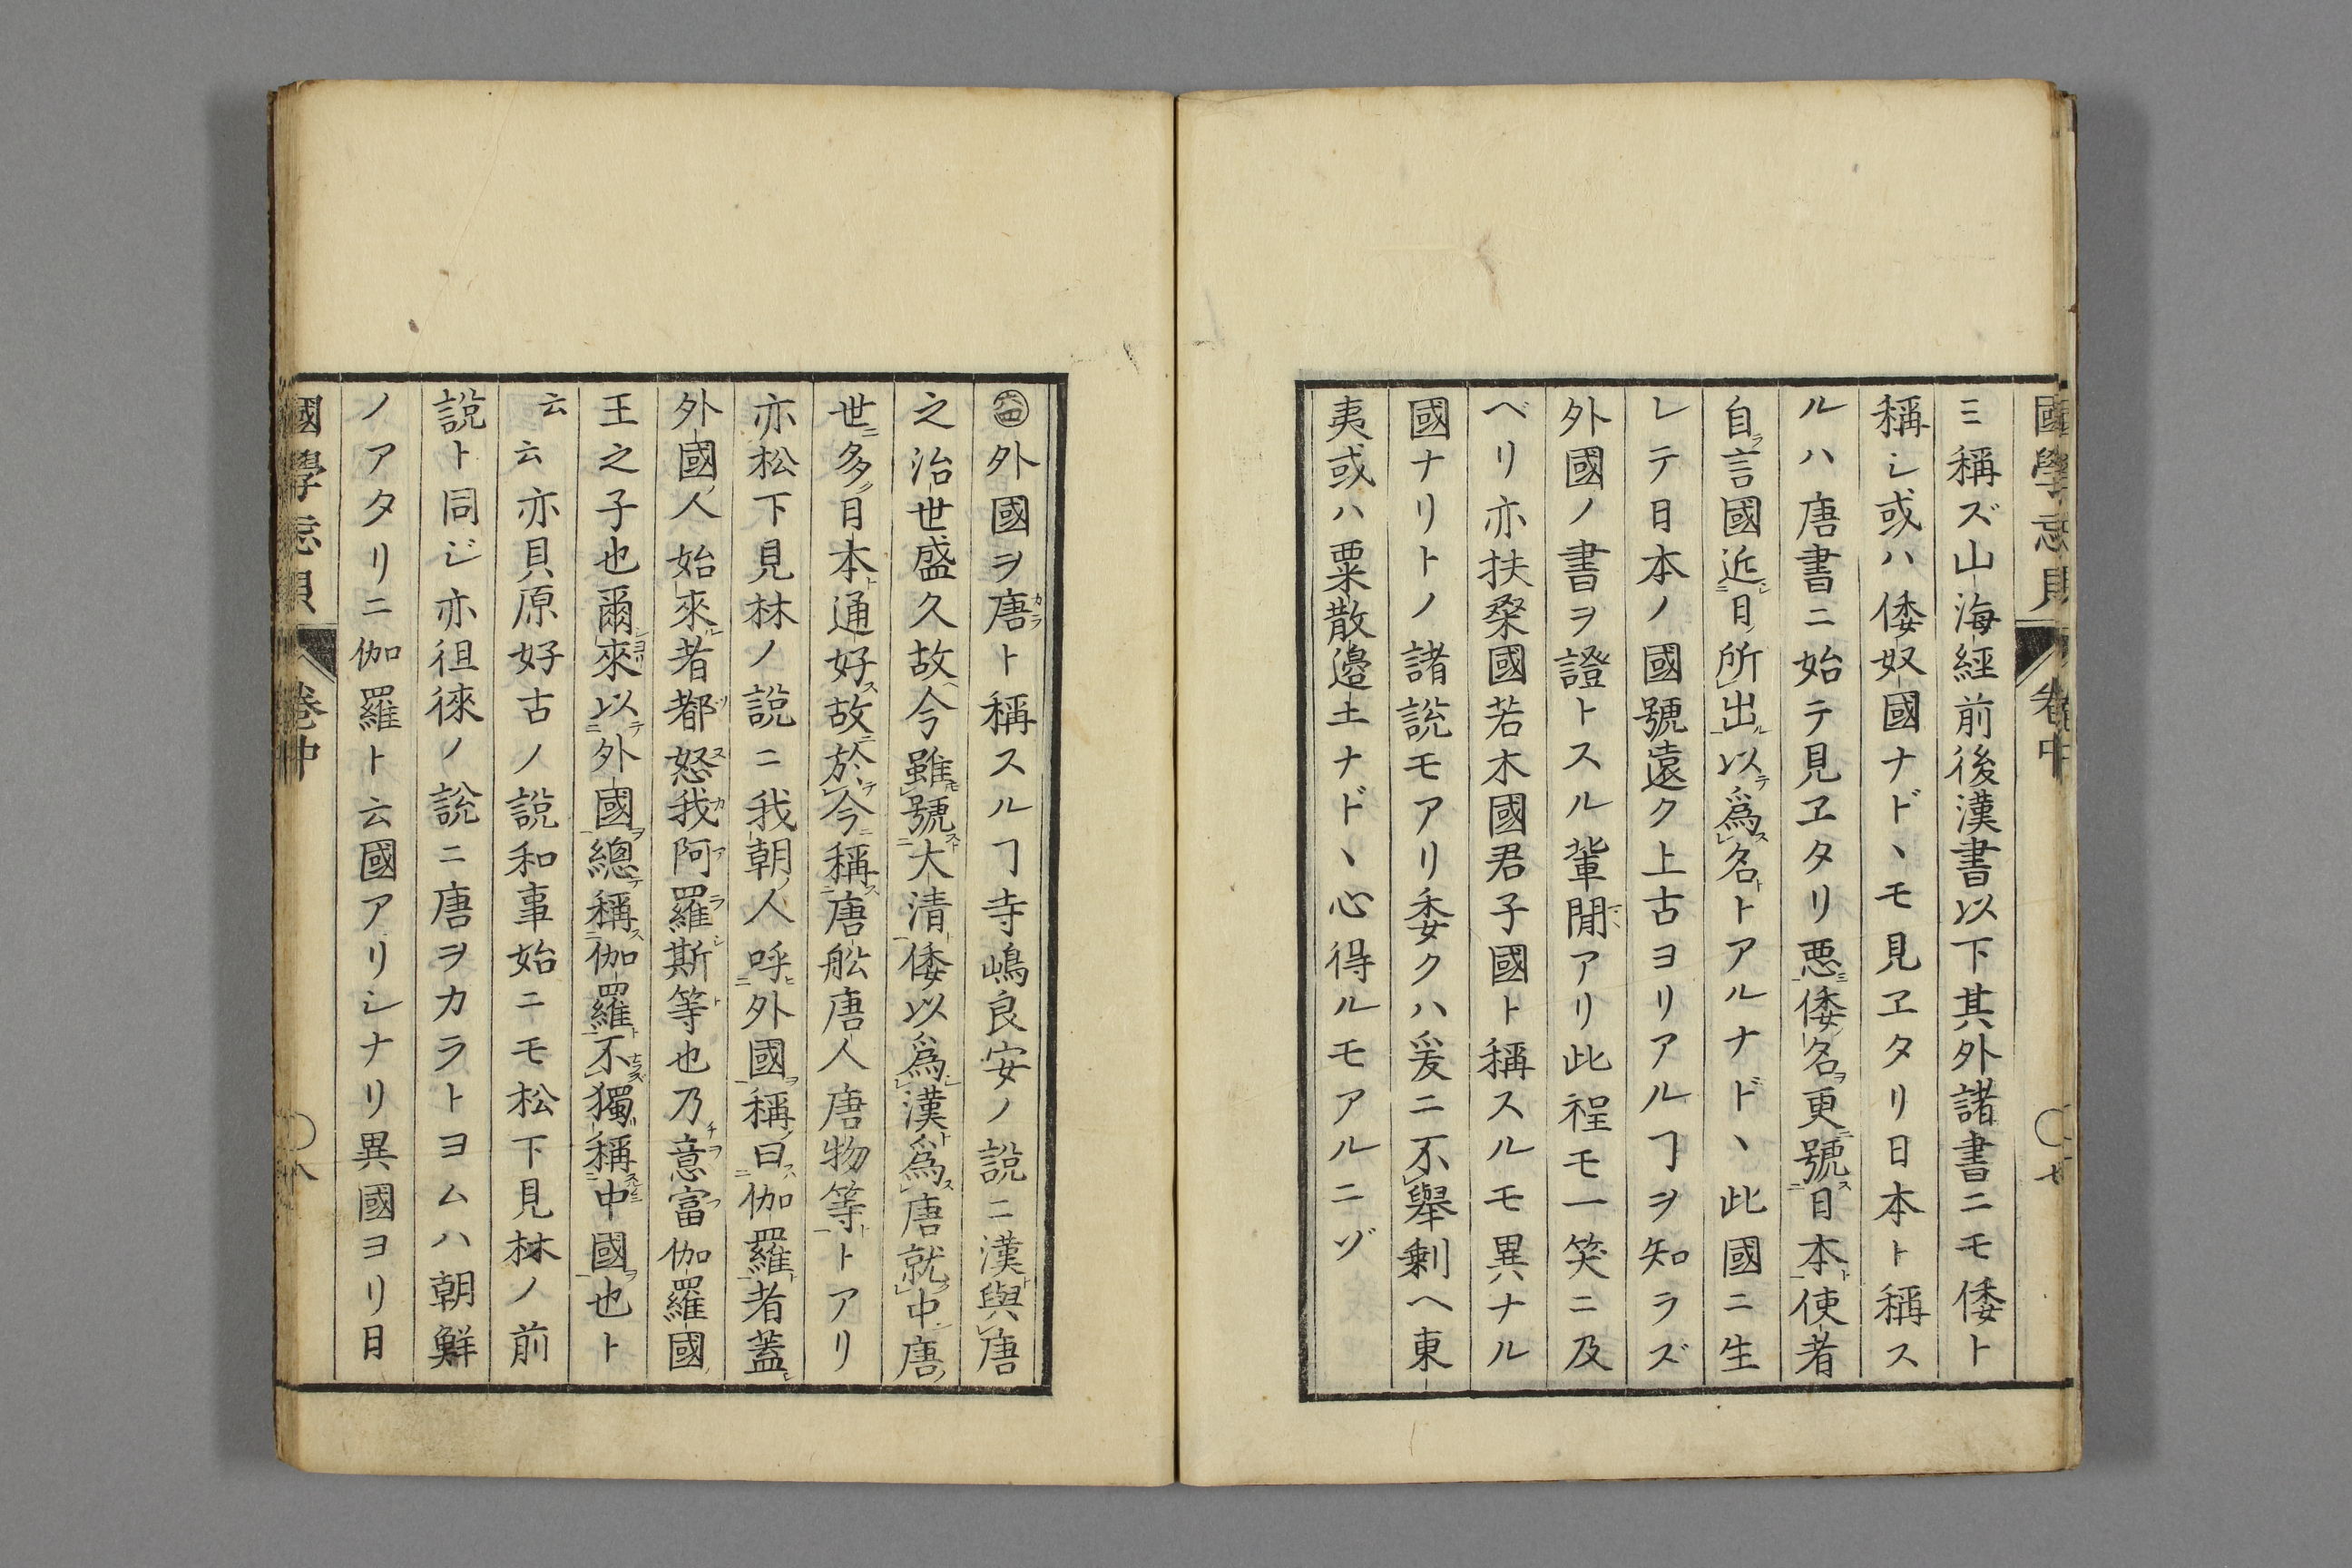 國學忘貝 卷中 〇七
ミ稱ズ山海經前後漢書以下其外諸書ニモ倭ト
稱シ或ハ倭奴國ナド、モ見ヱタリ日本ト稱ス
ルハ唐書ニ始テ見ヱタリ悪倭名更號日本使者
自言國近日所出以爲名トアルナド、此國ニ生
レテ日本ノ國號遠ク上古ヨリアルヿヲ知ラズ
外國ノ書ヲ證トスル輩閒アリ此程モ一笑ニ及
ベリ亦扶桒國若木國君子國ト稱スルモ異ナル
國ナリトノ諸說モアリ委クハ爰ニ不舉剰ヘ東
夷或ハ粟散邊土ナド、心得ルモアルニゾ
㊃外國ヲ唐ト稱スルヿ寺嶋良安ノ說ニ漢與唐
之治世盛久故今雖號大清倭以爲漢爲唐就中唐
世多日本通好故於今稱唐舩唐人唐物等トアリ
亦松下見林ノ說ニ我朝人呼外國稱曰伽羅者蓋
外國人始來者都怒我阿羅斯等也乃意富伽羅國
王之子也爾來以外國總稱伽羅不獨稱中國也ト
云云亦貝原好古ノ說和事始ニモ松下見林ノ前
說ト同ジ亦徂徠ノ說ニ唐ヲカラトヨムハ朝鮮
ノアタリニ伽羅ト云國アリシナリ異國ヨリ日
國學忘貝 卷中 〇八